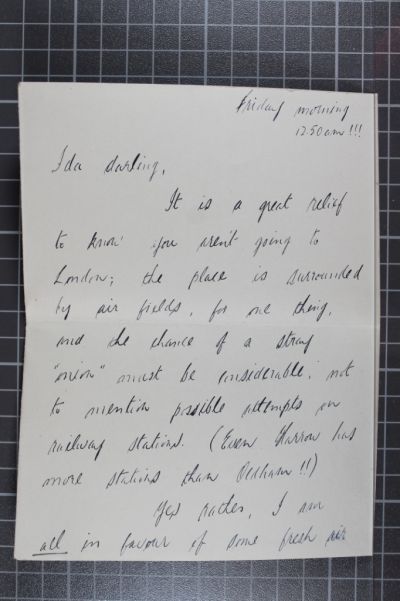 Friday morning
12.50 am!!!
Ida darling,
It is a great relief
to know you aren't going to
London; the place is surrounded
by air fields, for one thing,
and the chance of a stray
"onion" must be considerable, not
to mention possible attempts on
railway stations. (Even Harrow has
more stations than Oldham!!)
Yes rather, I am
all in favour of some fresh air